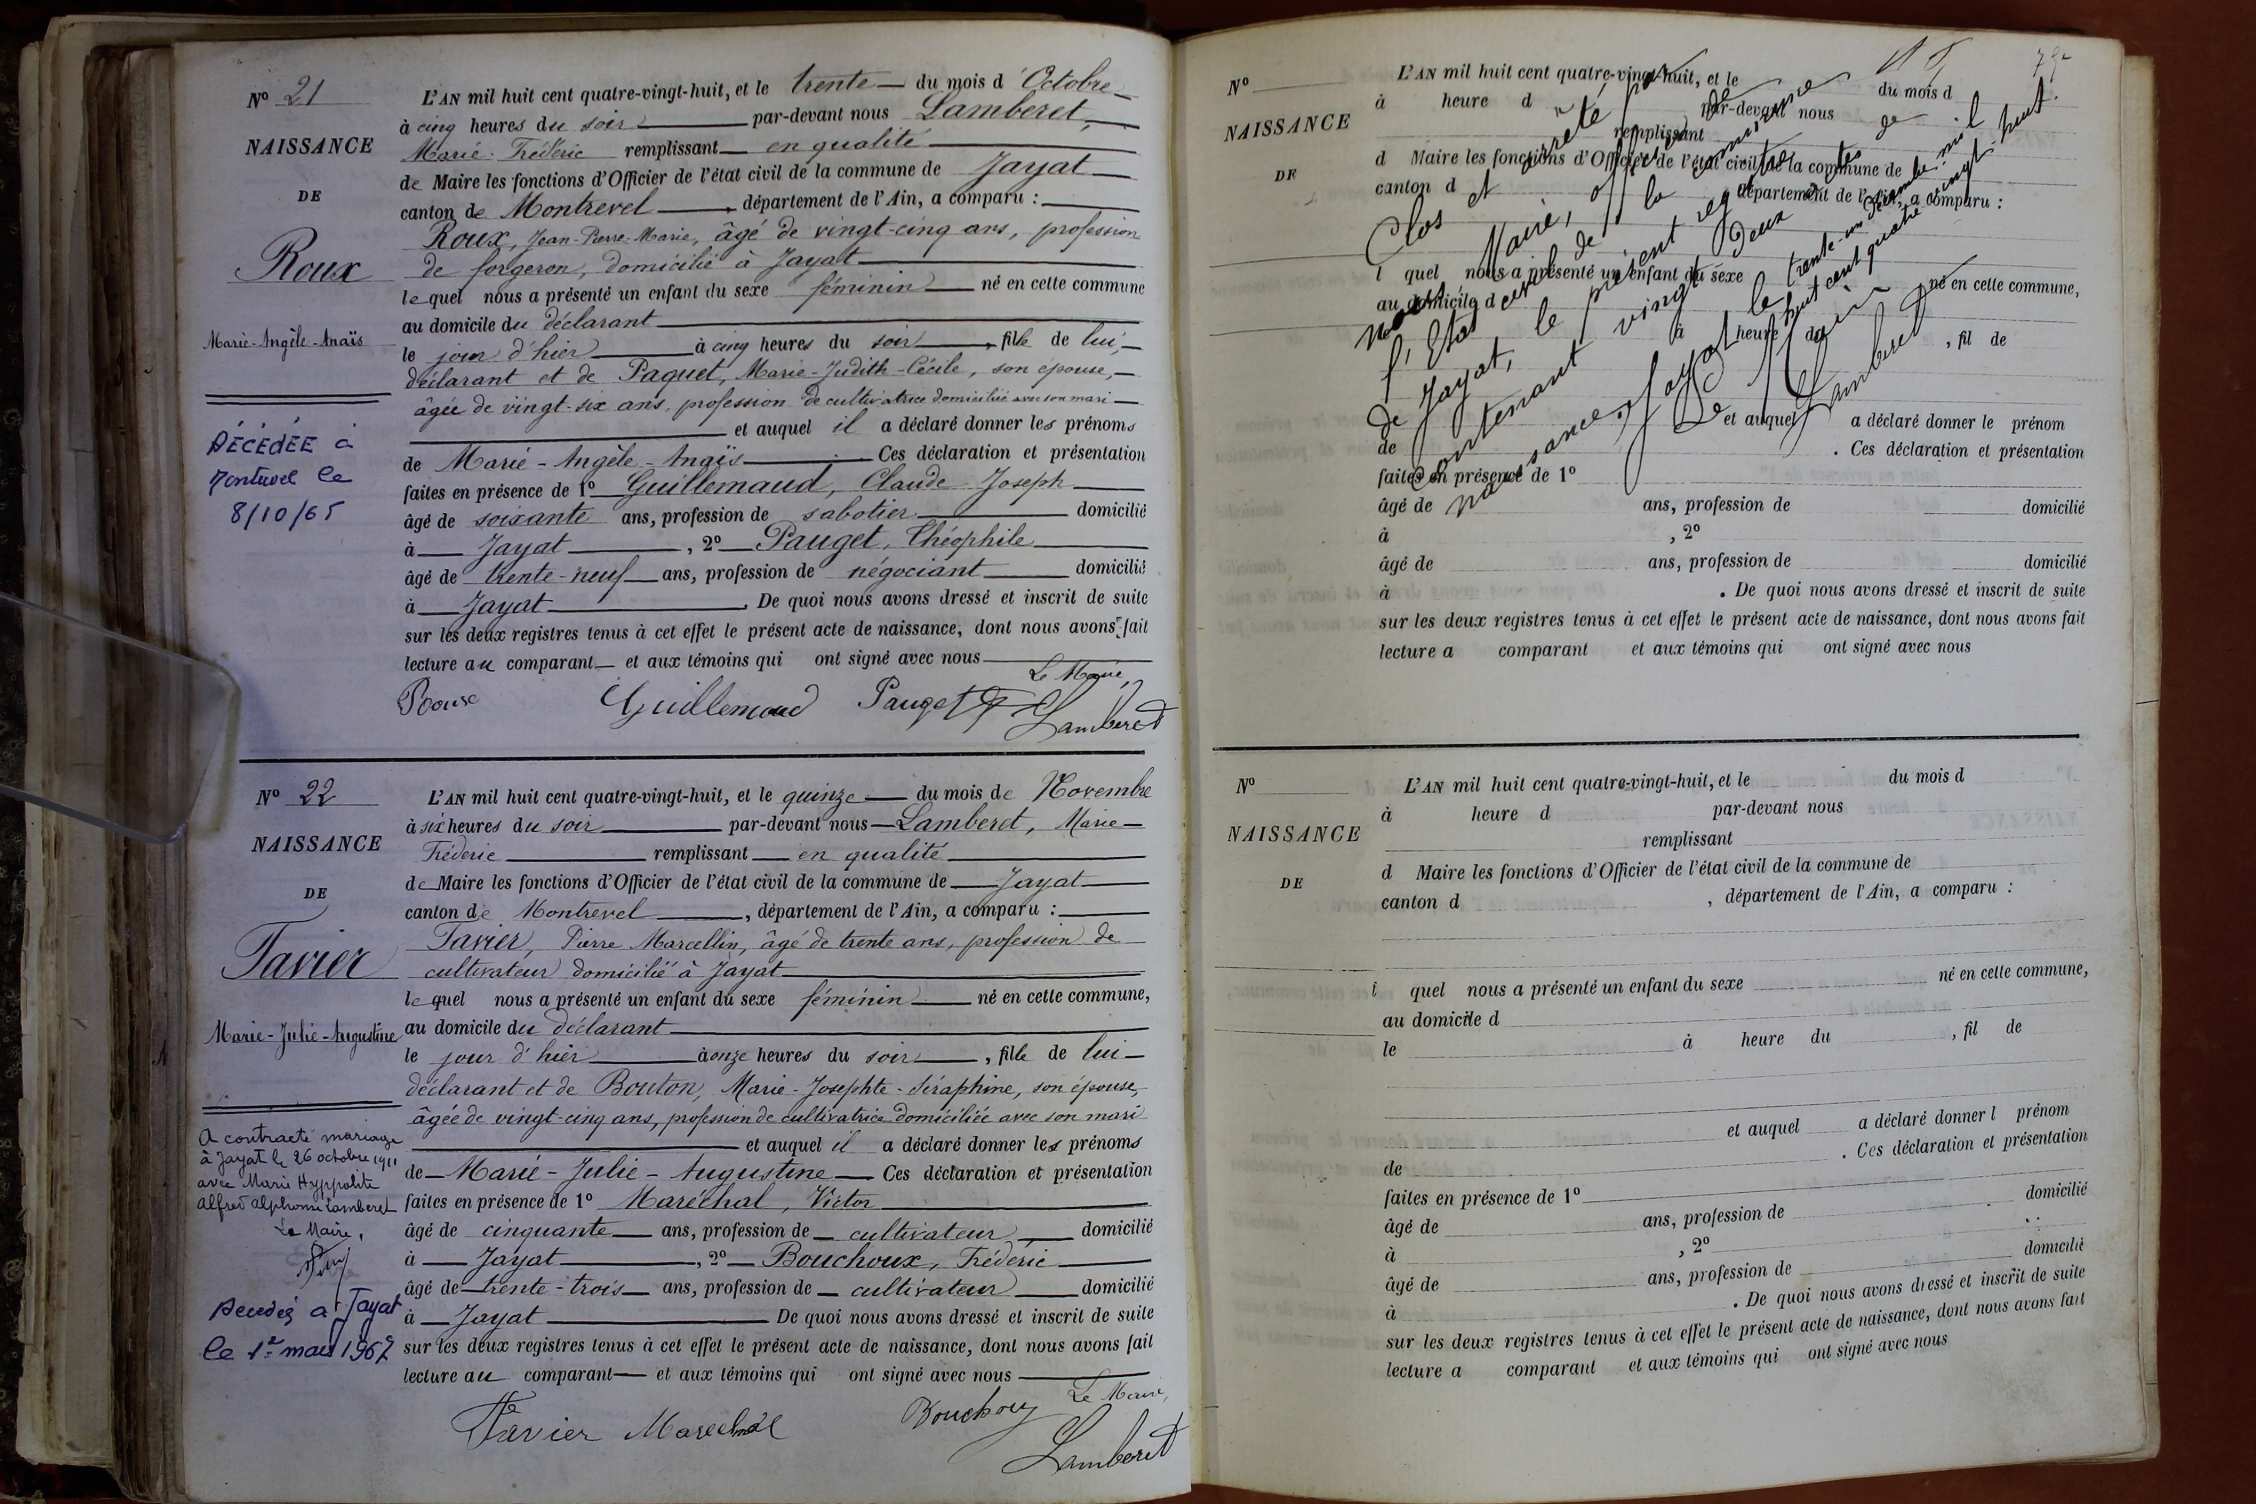 N° 21
NAISSANCE
DE
Roux
Marie-Angèle-Anaïs
DÉCÉDÉE à
Montrevel le
8/10/65
L'AN mil huit cent quatre-vingt-huit, et le trente du mois d'Octobre
à cinq heures du soir par-devant nous Lamberet,
Marie-Fréderic remplissant en qualité
de Maire les fonctions d'Officier de l'état civil de la commune de Jayat
canton de Montrevel, département de l'Ain, a comparu :
Roux, Jean-Pierre-Marie, âgé de vingt-cinq ans, profession
de forgeron, domicilié à Jayat
lequel nous a présenté un enfant du sexe féminin né en cette commune
au domicile du déclarant
le jour d'hier à cinq heures du soir, fille de lui,
déclarant et de Paquet, Marie-Judith-Cécile, son épouse,
âgée de vingt-six ans, profession de cultivatrice domiciliée avec son mari
et auquel il a déclaré donner les prénoms
de Marie-Angèle-Anaïs Ces déclaration et présentation
faites en présence de 1° Guillemaud, Claude Joseph
âgé de soixante ans, profession de sabotier domicilié
à Jayat, 2° Pauget, Théophile
âgé de trente-neuf ans, profession de négociant domicilié
à Jayat. De quoi nous avons dressé et inscrit de suite
sur les deux registres tenus à cet effet le présent acte de naissance, dont nous avons fait
lecture au comparant et aux témoins qui ont signé avec nous
Le Maire,
Guillemaud Pauget Lamberet
N° 22
NAISSANCE
DE
Favier
Marie-Julie-Augustine
A contracté mariage
à Jayat le 26 octobre 1911
avec Marie Hyppolite
Alfred Alphonse Lamberet
Le Maire,
Décédée a Jayat
le 1er mars 1967
L'AN mil huit cent quatre-vingt-huit, et le quinze du mois de Novembre
à six heures du soir par-devant nous Lamberet, Marie
Fréderic remplissant en qualité
de Maire les fonctions d'Officier de l'état civil de la commune de Jayat
canton de Montrevel, département de l'Ain, a comparu :
Favier, Pierre Marcellin, âgé de trente ans, profession de
cultivateur domicilié à Jayat
lequel nous a présenté un enfant du sexe féminin né en cette commune,
au domicile du déclarant
le jour d'hier à onze heures du soir, fille de lui
déclarant et de Bouton, Marie-Josephte-Séraphine, son épouse,
âgée de vingt-cinq ans, profession de cultivatrice domiciliée avec son mari
et auquel il a déclaré donner les prénoms
de Marie-Julie-Augustine Ces déclaration et présentation
faites en présence de 1° Maréchal, Victor
âgé de cinquante ans, profession de cultivateur domicilié
à Jayat, 2° Bouchoux, Fréderic
âgé de trente-trois ans, profession de cultivateur domicilié
à Jayat De quoi nous avons dressé et inscrit de suite
sur les deux registres tenus à cet effet le présent acte de naissance, dont nous avons fait
lecture au comparant et aux témoins qui ont signé avec nous
Le Maire,
Favier Marechal Bouchoux Lamberet
N°
NAISSANCE
DE
L'AN mil huit cent quatre-vingt-huit, et le du mois d
à heure d par-devant nous
remplissant
d Maire les fonctions d'Officier de l'état civil de la commune de
canton d département de l'Ain, a comparu :
l quel nous a présenté un enfant du sexe né en cette commune,
au domicile d
à heure du , fil de
et auquel a déclaré donner le prénom
de . Ces déclaration et présentation
faites en présence de 1°
âgé de ans, profession de domicilié
à , 2°
âgé de ans, profession de domicilié
à . De quoi nous avons dressé et inscrit de suite
sur les deux registres tenus à cet effet le présent acte de naissance, dont nous avons fait
lecture a comparant et aux témoins qui ont signé avec nous
Clos et arrêté par
nous Maire, officier de
l'Etat civil de la commune
de Jayat, le présent registre
contenant vingt deux actes de
naissance, Jayat le trente-un Décembre mil
huit cent quatre vingt-huit.
Le Maire
Lamberet
N°
NAISSANCE
DE
L'AN mil huit cent quatre-vingt-huit, et le du mois d
à heure d par-devant nous
remplissant
d Maire les fonctions d'Officier de l'état civil de la commune de
canton d , département de l'Ain, a comparu :
l quel nous a présenté un enfant du sexe né en cette commune,
au domicile d
le à heure du , fil de
et auquel a déclaré donner l prénom
de . Ces déclaration et présentation
faites en présence de 1°
âgé de ans, profession de domicilié
à , 2°
âgé de ans, profession de domicilié
à . De quoi nous avons dressé et inscrit de suite
sur les deux registres tenus à cet effet le présent acte de naissance, dont nous avons fait
lecture a comparant et aux témoins qui ont signé avec nous